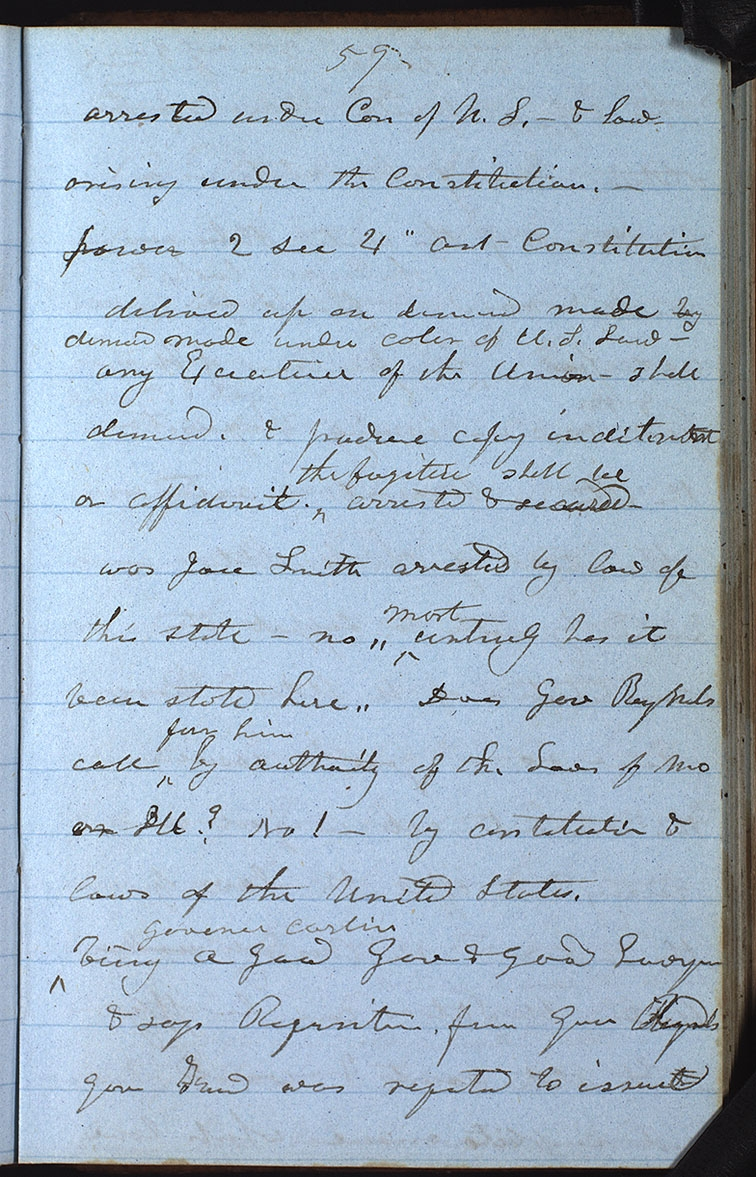 59
arrested under Con of U. S. — & law
arising under the Constitution. —
power 2 sec 4" art Constitution
delivered up on demand made by
demand made under color of U. S. Law —
any Executive of the Union — shall
demand. & produce copy inditement
the fugitive shall be
or affidavit. ^ arrested & secured —
was Jose Smith arrested by law of
most
this state — no „ ^ certainly has it
been stated here „ does Gov Reynolds
for him
call ^ by authority of the Laws of Mo
or Ill? No! — by constitution &
laws of the United States.
Govener Carlin
^ being a good Gov & good Lawyer
& says Requisition from Gov Reynolds
gov was to issue